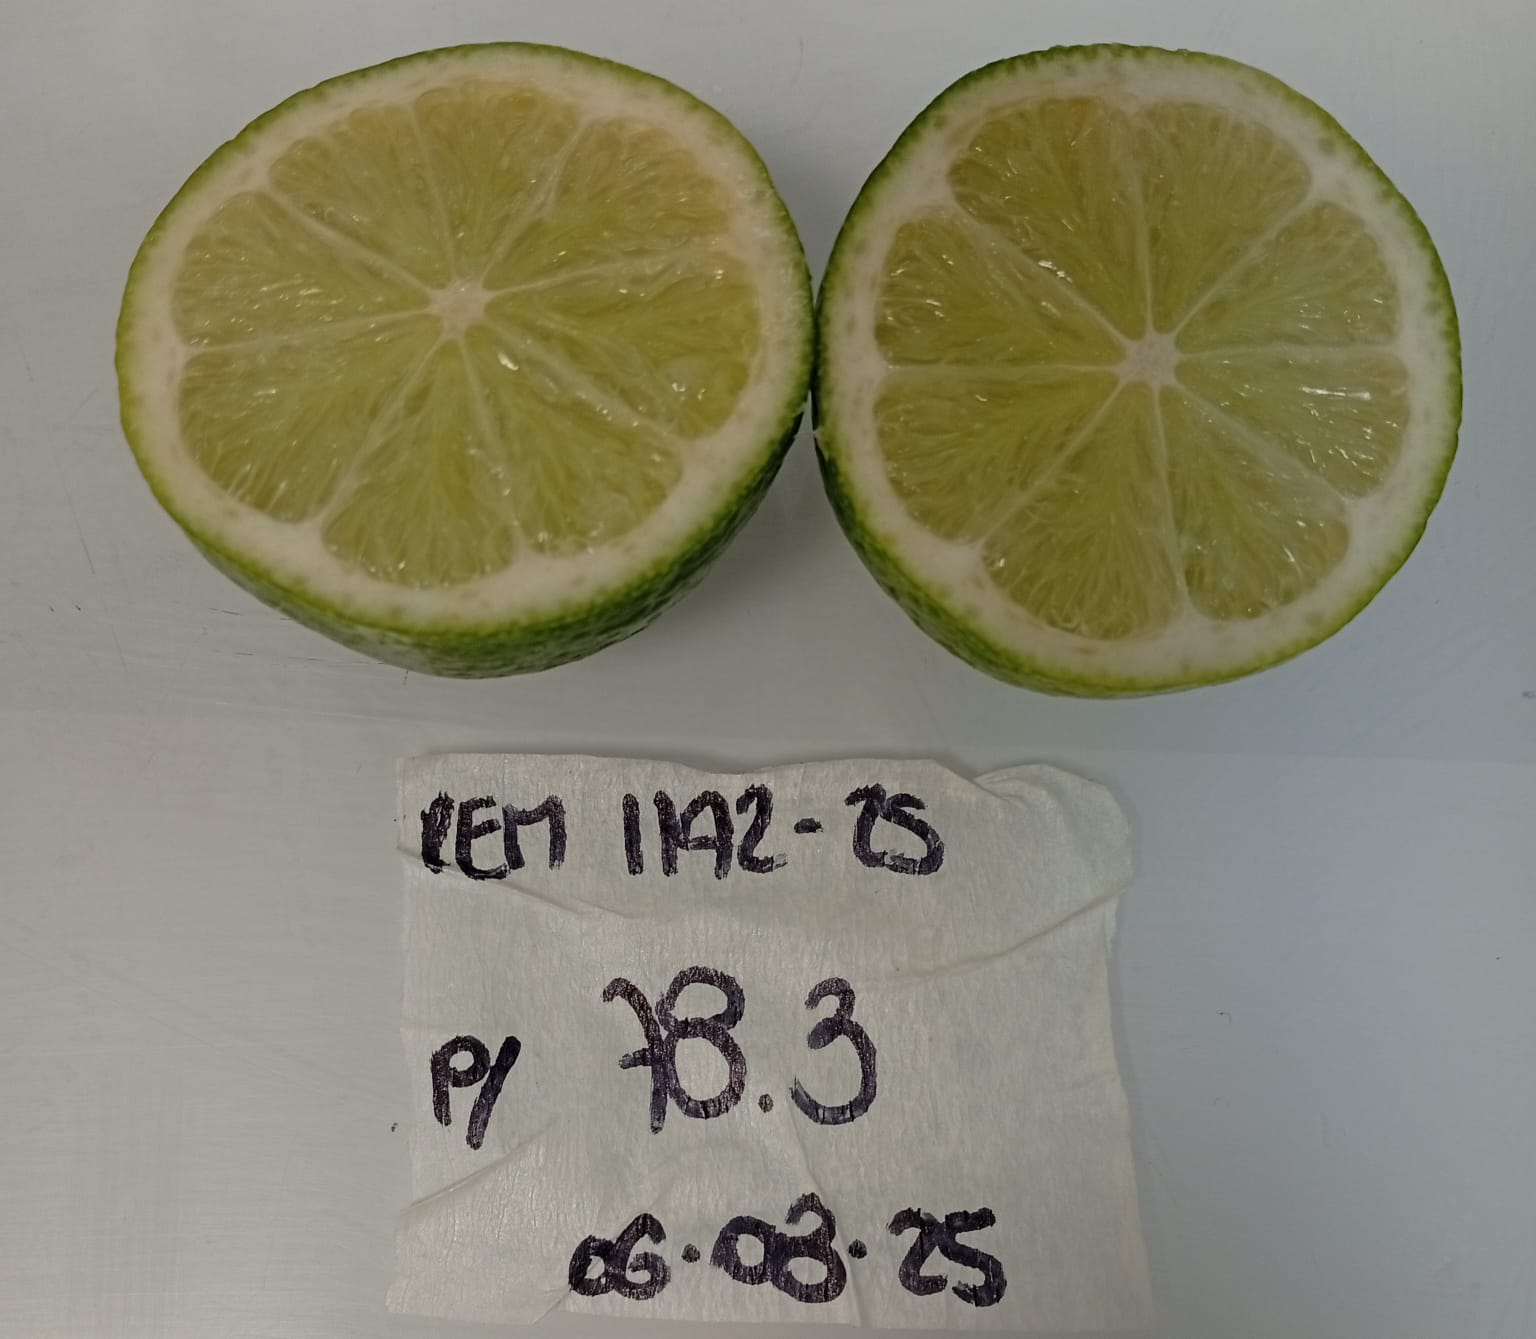 REM 11A2-25
P/ 78.3
06.08.25